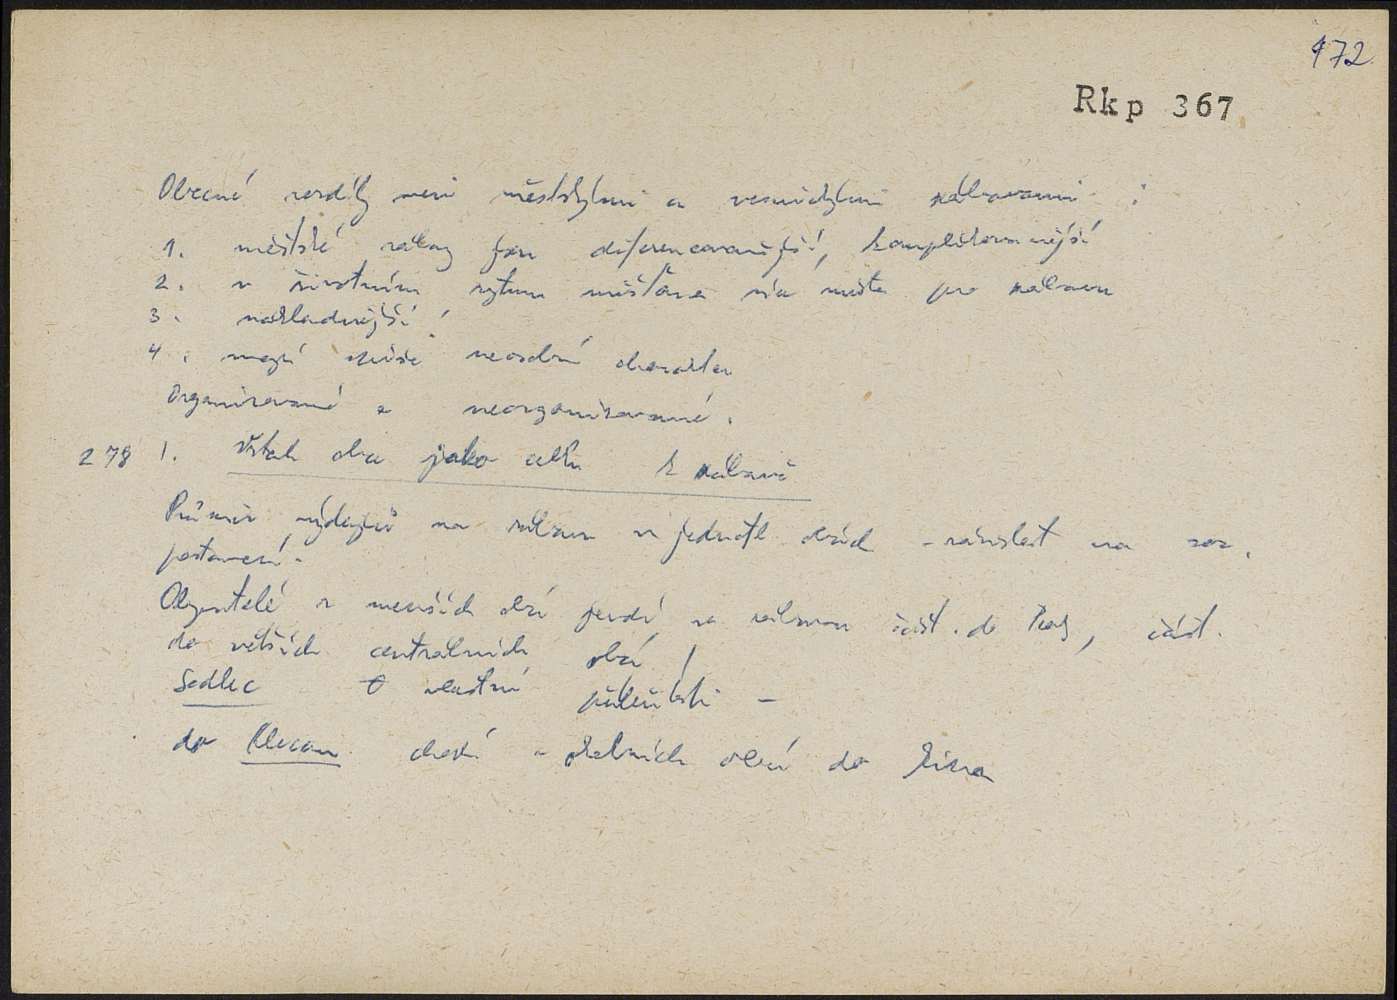 172
Rkp 367
Obecné rozdíly mezi městskými a vesnickými zábavami :
1. městské zábavy jsou diferencovanější, komplikovanější
2. v životním rytmu měšťana má místo pro zábavu
3. nákladnější !
4. mají spíše neosobní charakter
Organizované a neorganizované.
278 1. Vztah obce jako celku k zábavě
Průměr výdajů na zábavu v jednotl. obcích – závislost na soc.
postavení.
Obyvatelé z menších obcí jezdí za zábavou část. do Prahy, část.
do větších centrálních obcí !
Sedlec vlastní příležitosti –
do Klecan chodí z okolních obcí do kina